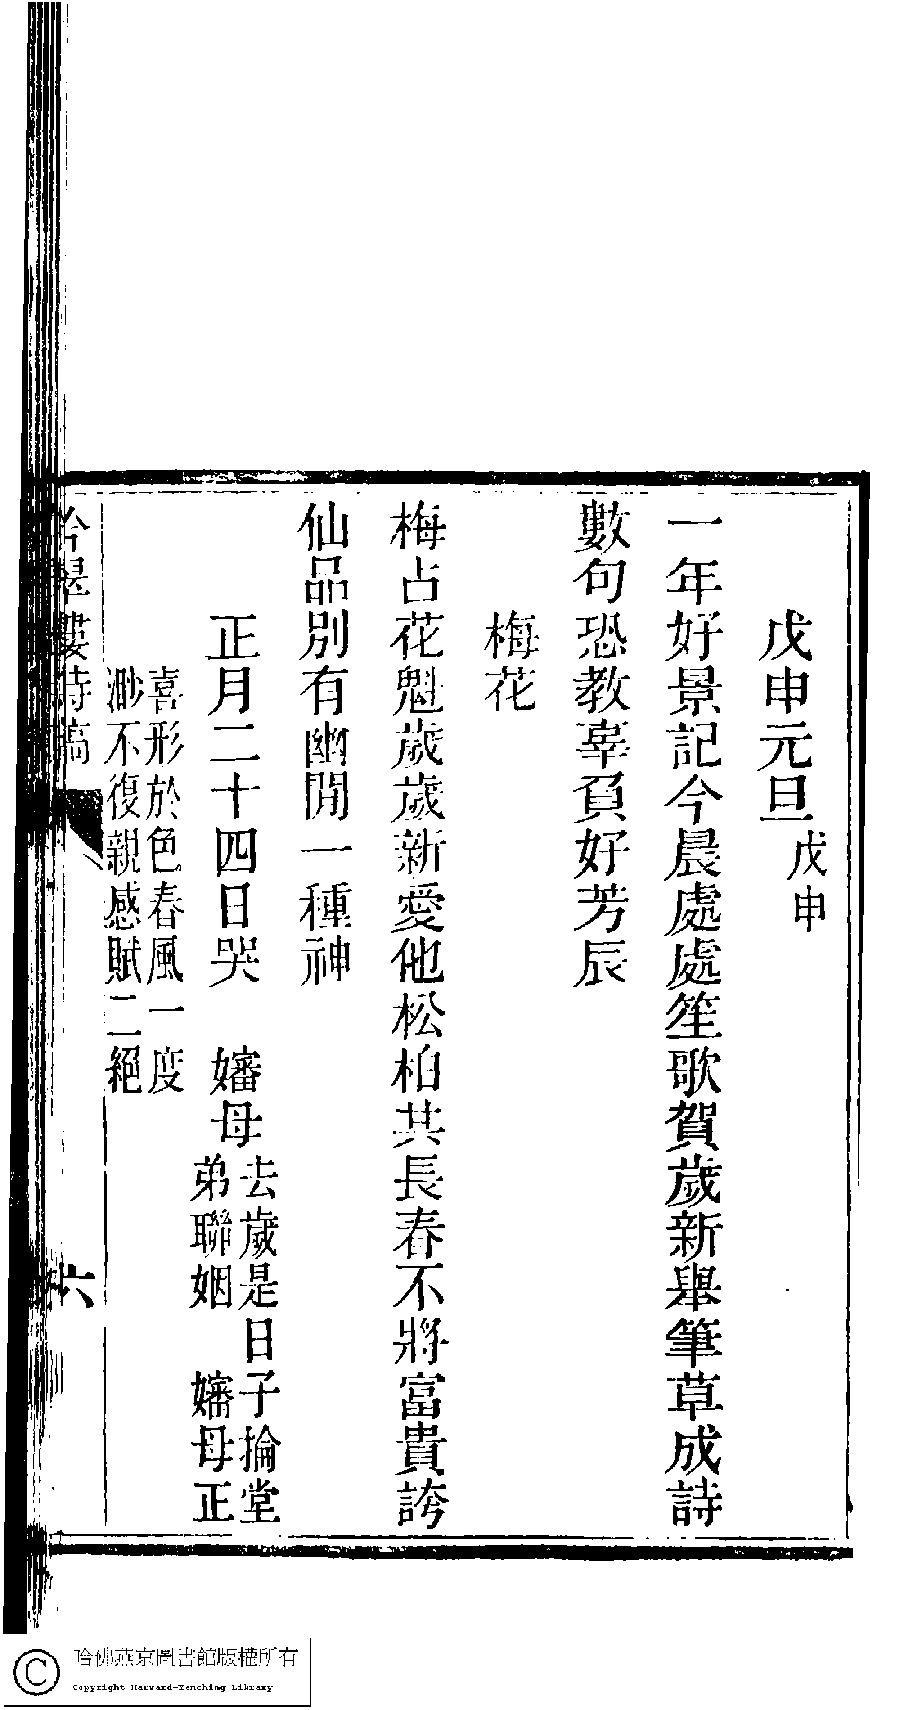 戊申元旦戊申
一年好景記今晨處處笙歌賀歲新舉筆草成詩
數句恐教辜負好芳辰
梅花
梅占花魁歲歲新愛他松柏共長春不將富貴誇
仙品別有幽閒一種神
正月二十四日哭　嬸母去歲是日子掄堂
弟聯姻　嬸母正
喜形於色春風一度
渺不復親感賦二絕
吟翠樓詩稿
六
哈佛燕京圖書館版權所有
Copyright Harvard-Yenching Library